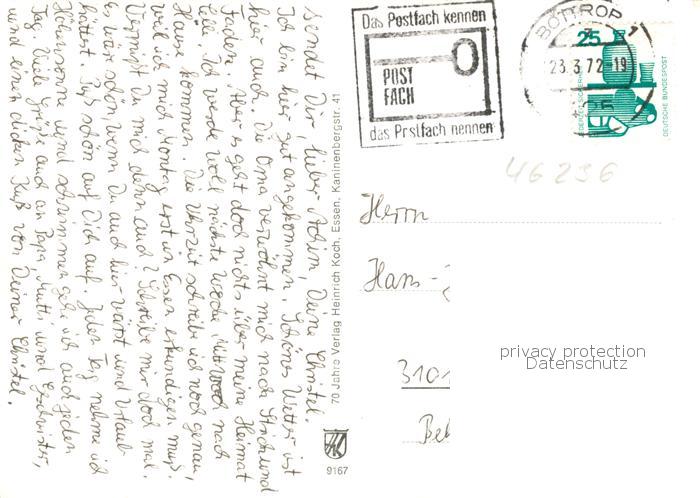 sendet Dir, lieber Achim, Deine Christel.
Ich bin hier gut angekommen. Schönes Wetter ist
hier auch. Die Oma verwöhnt mich nach Strich und
Faden. Aber es geht doch nichts über meine Heimat
Ich werde wohl nächste Woche, Mittwoch nach
Hause kommen. Die Uhrzeit schreibe ich noch genau,
weil ich mich Montag erst in Essen erkundigen muß.
Vermißt Du mich denn auch? Schreibe mir doch mal.
Es wär schön, wenn Du auch hier wärst und Urlaub
hättest. Paß schön auf Dich auf. Jeden Tag nehme ich
Höhensonne und schwimmen gehe ich auch jeden
Tag. Viele Grüße auch an Papa, Mutti und Geschwister,
und einen dicken Kuß von Deiner Christel.
70 Jahre Verlag Heinrich Koch, Essen, Kaninenbergstr. 41
HK
9167
Das Postfach kennen
POST
FACH
das Postfach nennen
BOTTROP 1
23.3.72-19
25
DEUTSCHE BUNDESPOST
46236
Herrn
Hans-
310
privacy protection
Datenschutz